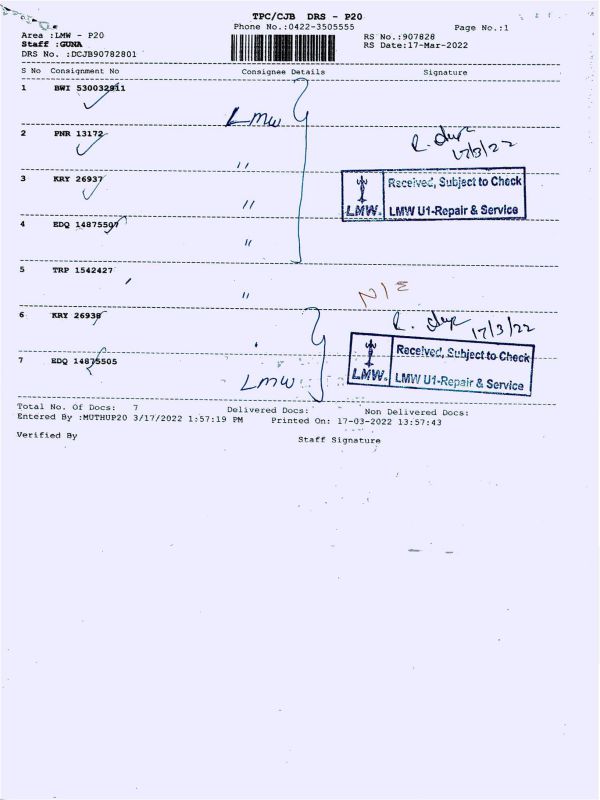 TPC/CJB DRS - P20
Phone No.:0422-3505555
Page No.:1
Area :LMW - P20
RS No.:907828
Staff :GUNA
RS Date:17-Mar-2022
DRS No. :DCJB90782801
S No Consignment No Consignee Details Signature
1 BWI 530032911
LMW
2 PNR 13172
17/3/22
"
3 KRY 26937
Received, Subject to Check
LMW.
LMW U1-Repair & Service
"
4 EDQ 14875507
"
5 TRP 1542427
" N/E
6 KRY 26938
17/3/22
Received, Subject to Check
7 EDQ 14875505
LMW
LMW.
LMW U1-Repair & Service
Total No. Of Docs: 7 Delivered Docs: Non Delivered Docs:
Entered By :MUTHUP20 3/17/2022 1:57:19 PM Printed On: 17-03-2022 13:57:43
Verified By
Staff Signature